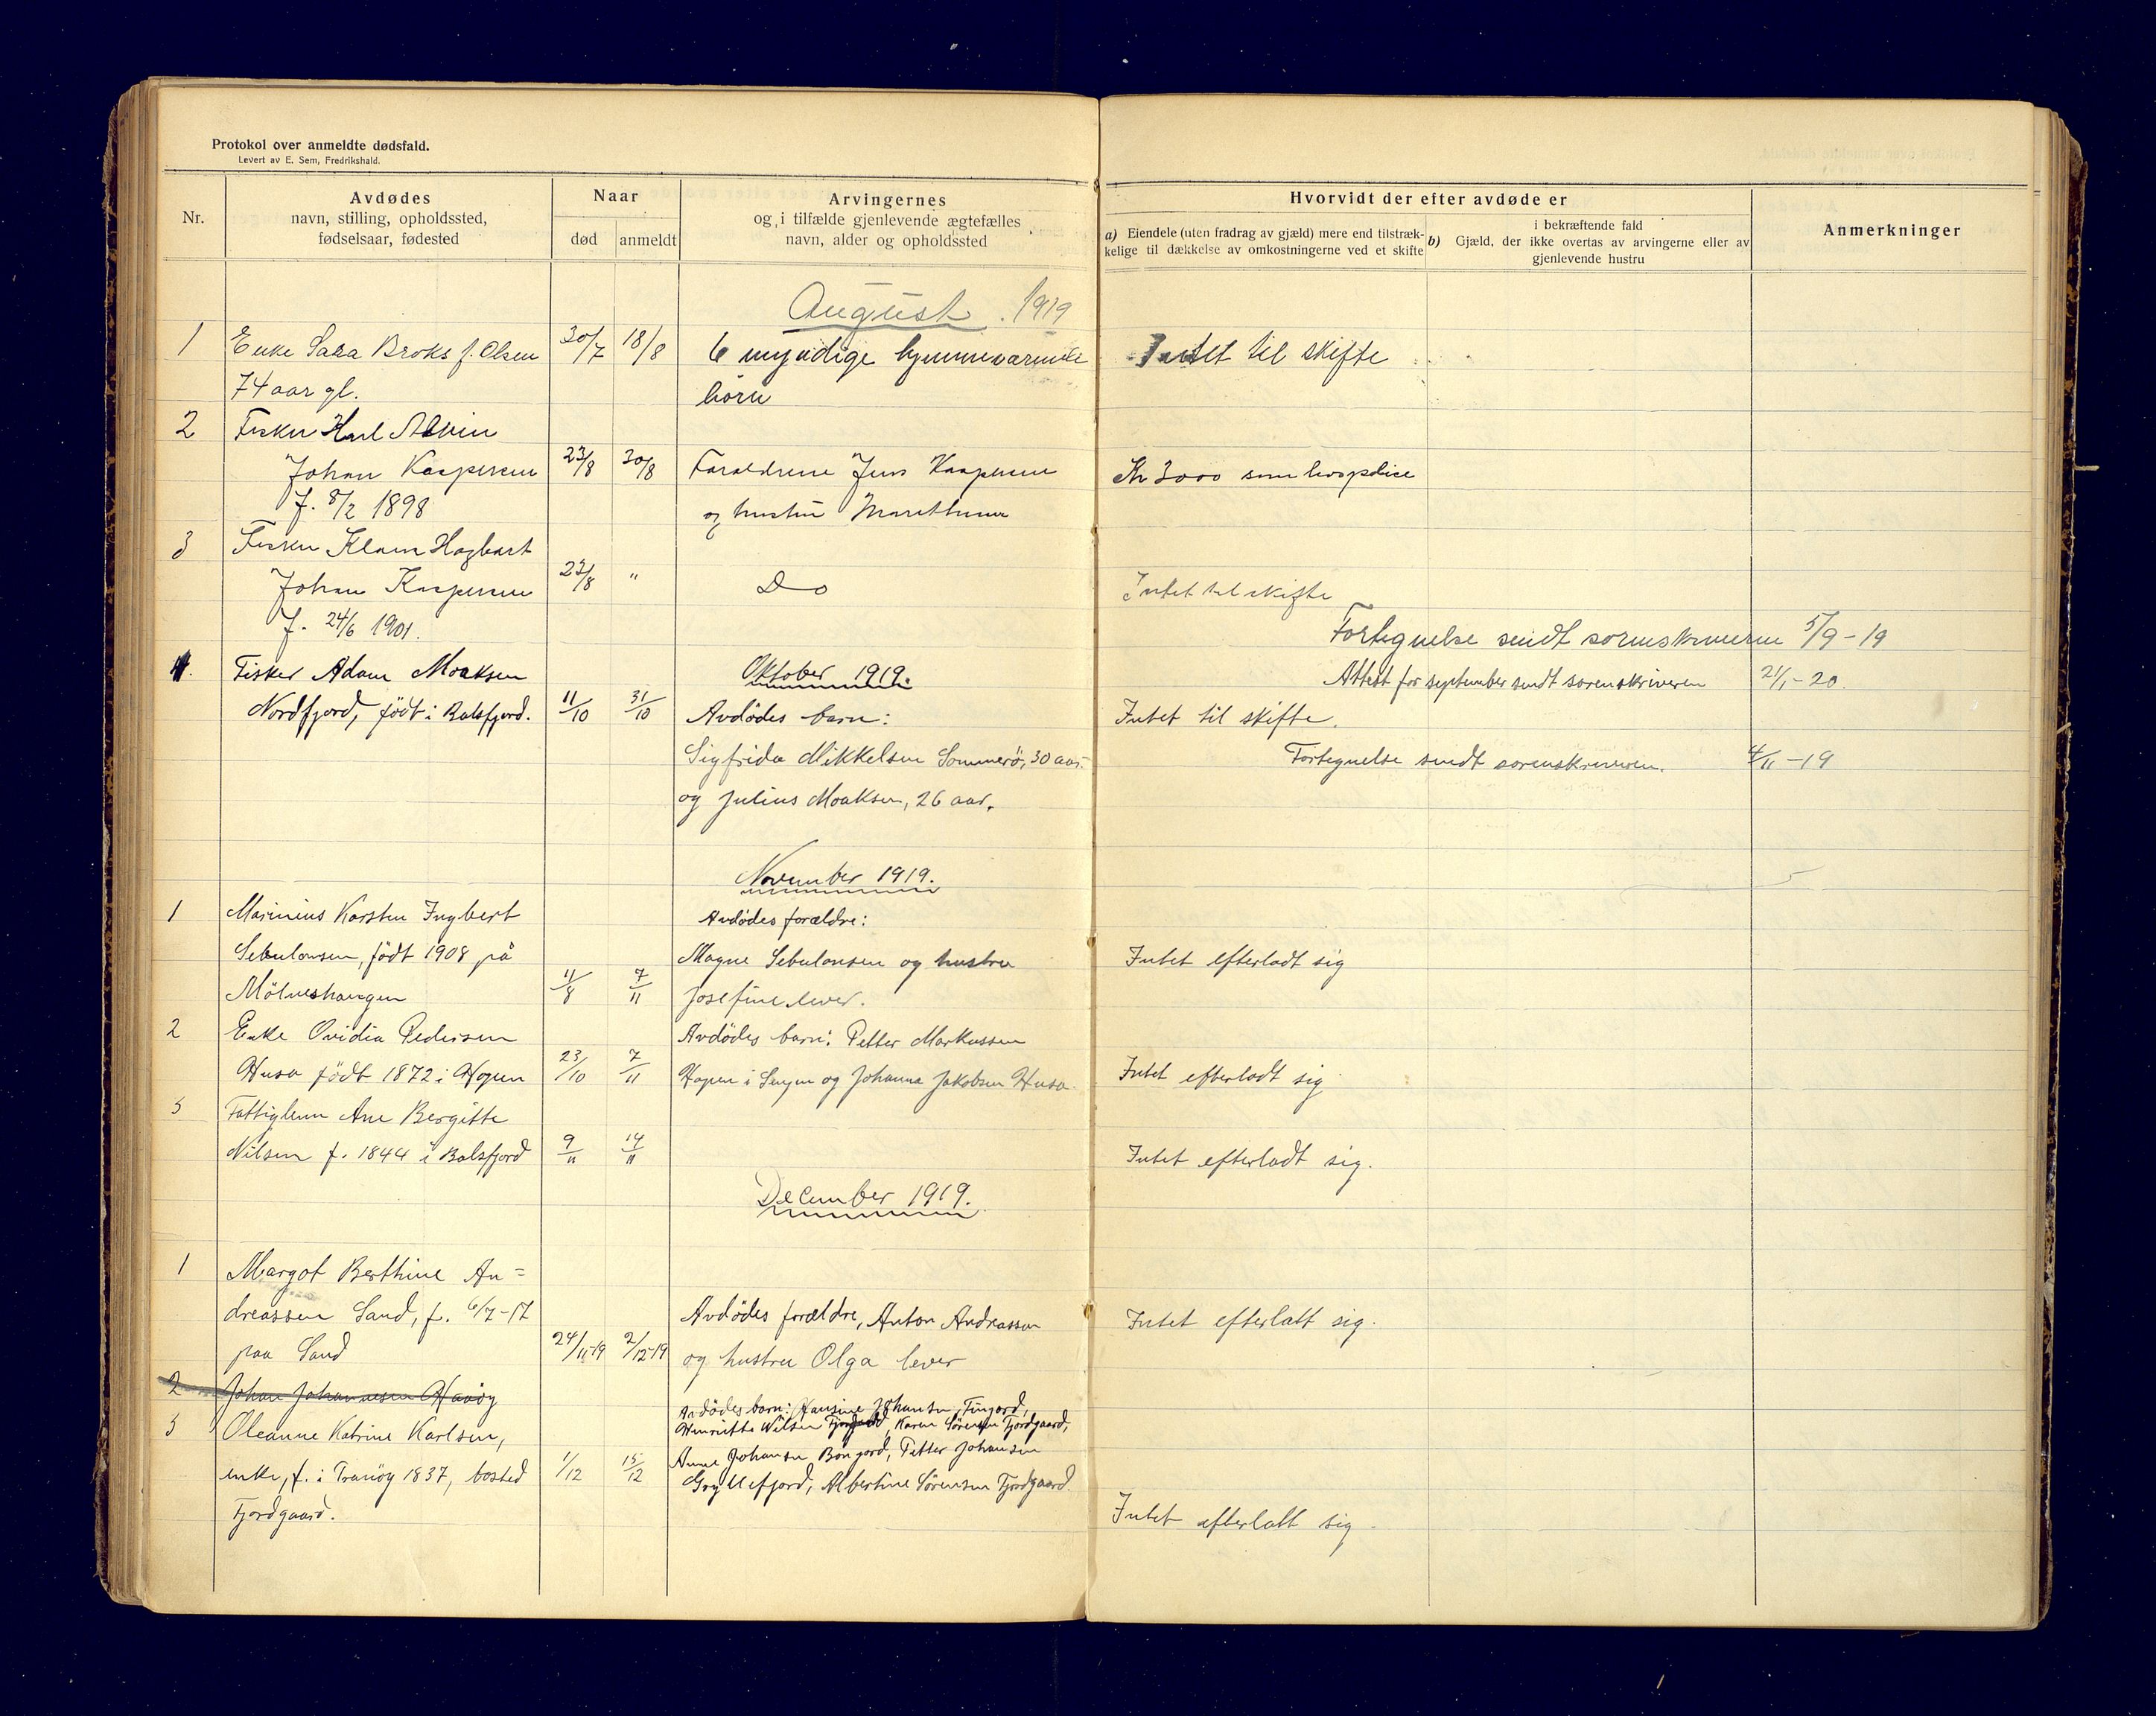 Protokol over anmeldte dødsfald.
Levert av E. Sem, Fredrikshald.
Nr.
Avdødes
navn, stilling, opholdssted,
fødselsaar, fødested
Naar
død
anmeldt
Arvingernes
og i tilfælde gjenlevende ægtefælles
navn, alder og opholdssted
Hvorvidt der efter avdøde er
a) Eiendele (uten fradrag av gjæld) mere end tilstræk-
kelige til dækkelse av omkostningerne ved et skifte
i bekræftende fald
b) Gjæld, der ikke overtas av arvingerne eller av
gjenlevende hustru
Anmerkninger
August 1919
1 Enke Sara Broks f. Olsen 30/7 18/8 6 myndige hjemmeværende Intet til skifte
74 aar gl. börn
2 Fisker Karl Alvin
Johan Kaspersen 23/8 30/8 Foraldrene Jens Kaspersen Kr 3000 som
f. 8/2 1898 og hustru
3 Fisker Hagbart
Johan Kaspersen 23/8 " Do Intet til skifte
f. 24/6 1901. Fortegnelse sendt sorenskriveren 5/9-19
4. Fisker Adam Moaksen Oktober 1919. Attest for september sendt sorenskriveren 21/1-20.
Nordfjord, födt i Balsfjord. 11/10 31/10 Avdödes barn: Intet til skifte.
Sigfrida Mikkelsen Sommerö, 30 aar. Fortegnelse sendt sorenskriveren. 4/11-19
og Julius Moaksen, 26 aar.
November 1919.
1 Marinius Karsten Ingbert Avdödes forældre:
Sebulonsen, födt 1908 på Magne Sebulonsen og hustru Intet efterladt sig
Mölneshaugen 11/8 7/11 Josefine lever.
2 Enke Ovidia Pedersen Avdödes barn: Petter Markussen
Husø födt 1872 i Hopen 23/10 7/11 Hopen i Senjen og Johanna Jakobsen Husø. Intet efterladt sig
3 Fattiglem Ane Bergitte
Nilsen f. 1844 i Balsfjord 9/11 14/11 Intet efterladt sig.
December 1919.
1 Margot Berthine An=
dreassen Sand, f. 6/7-17 Avdödes forældre, Anton Andreassen Intet efterlatt sig.
paa Sand 24/11-19 2/12-19 og hustru Olga lever
2 Johan Johannesen Havöy
Avdödes barn: Jansine Johansen, Finjord,
3 Oleanne Katrine Karlsen, Henriette Nilsen Fjordgaard, Karen Sørensen Fjordgaard,
Anne Johansen Bonjord, Petter Johansen
enke, f. i Tranöy 1837, bosted 1/12 15/12 Gryllefjord, Albertine Sørensen Fjordgaard.
Fjordgaard. Intet efterlatt sig.